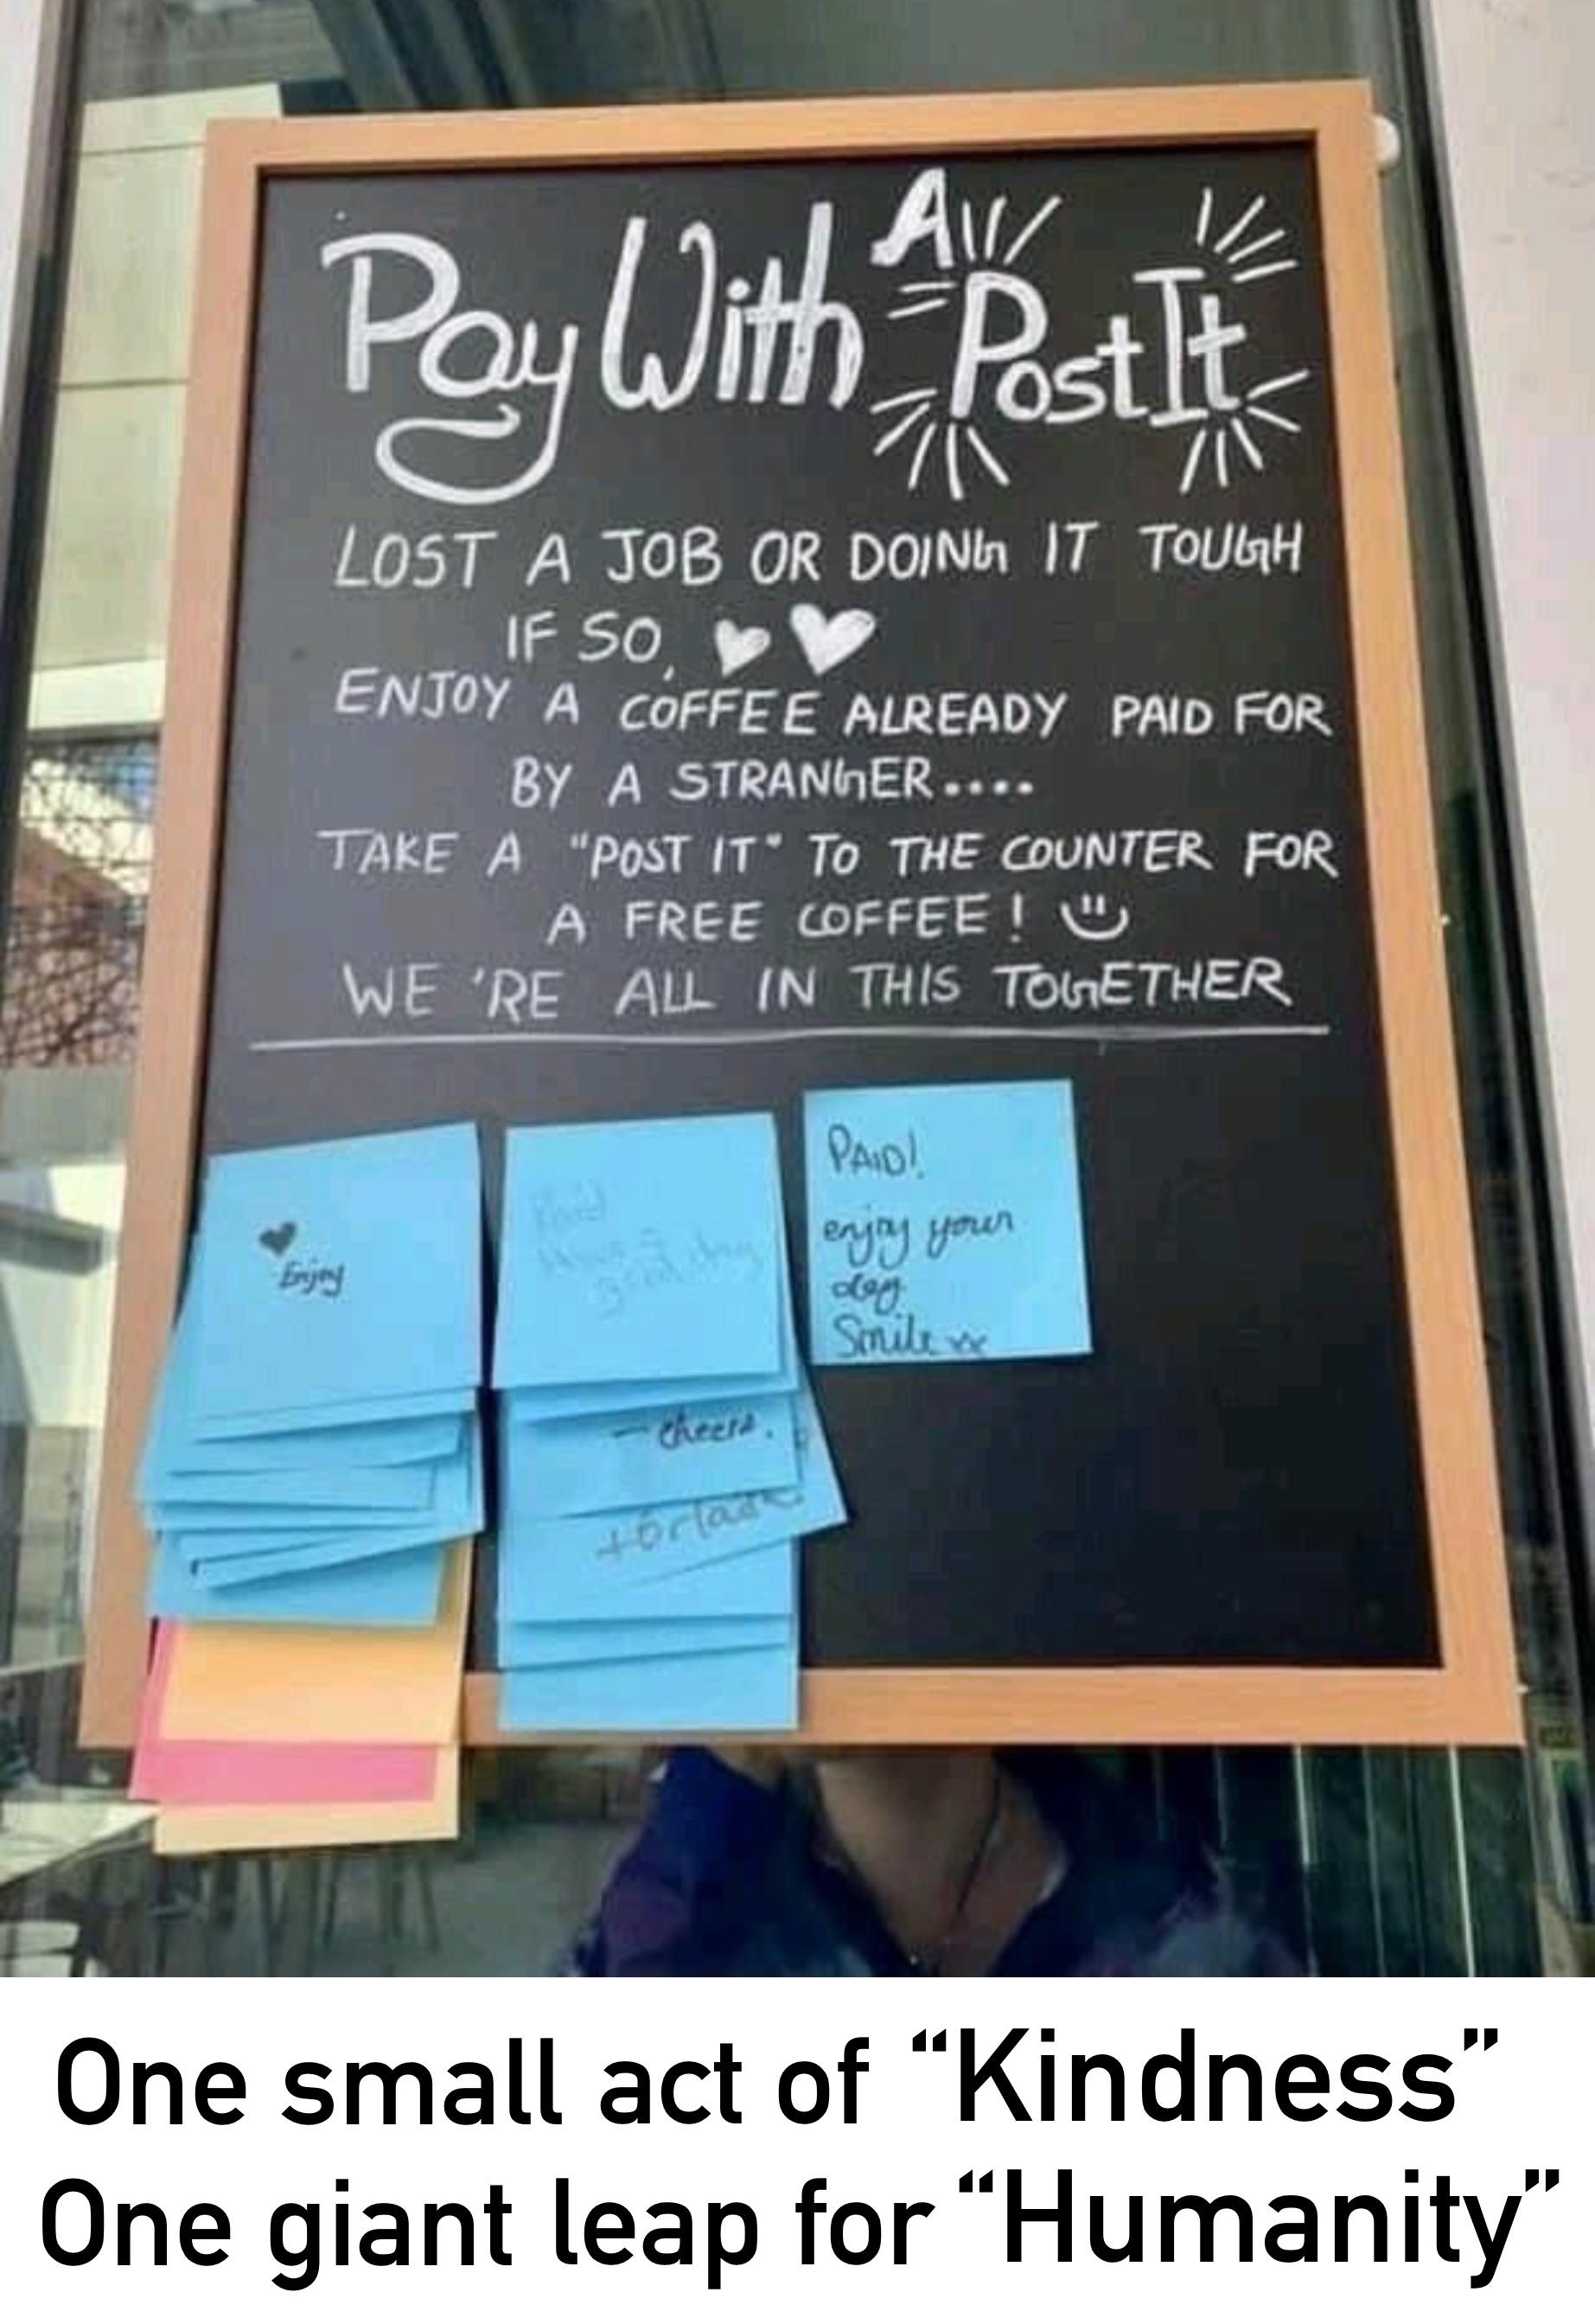 Pay With A Post It
LOST A JOB OR DOING IT TOUGH
IF SO,
ENJOY A COFFEE ALREADY PAID FOR
BY A STRANGER....
TAKE A "POST IT" TO THE COUNTER FOR
A FREE COFFEE!
WE'RE ALL IN THIS TOGETHER
Enjoy
Paid
good day
- cheers.
PAID!
enjoy your
day
Smile xx
One small act of “Kindness”
One giant leap for “Humanity”